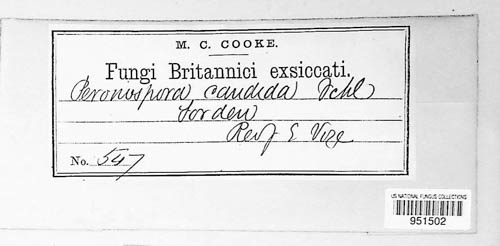 M. C. COOKE.
Fungi Britannici exsiccati.
Peronospora candida Fckl
Forden
Rev J E Vize
No. 547
US NATIONAL FUNGUS COLLECTIONS
951502